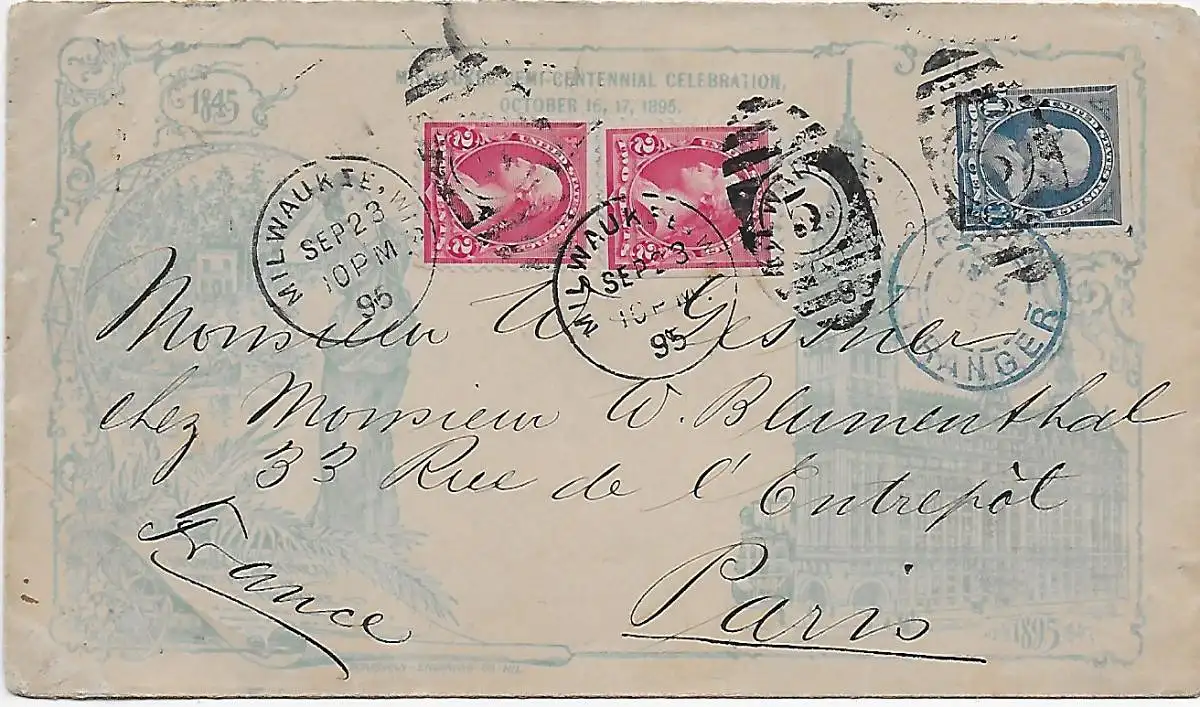 MILWAUKEE SEMI-CENTENNIAL CELEBRATION,
OCTOBER 16, 17, 1895.
1845
MILWAUKEE, WIS
SEP 23
10 PM
95
MILWAUKEE, WIS
SEP 23
10 PM
95
2
ETRANGER
Monsieur W. Gessner
chez Monsieur W. Blumenthal
33 Rue de l'Entrepôt
Paris
France
1895